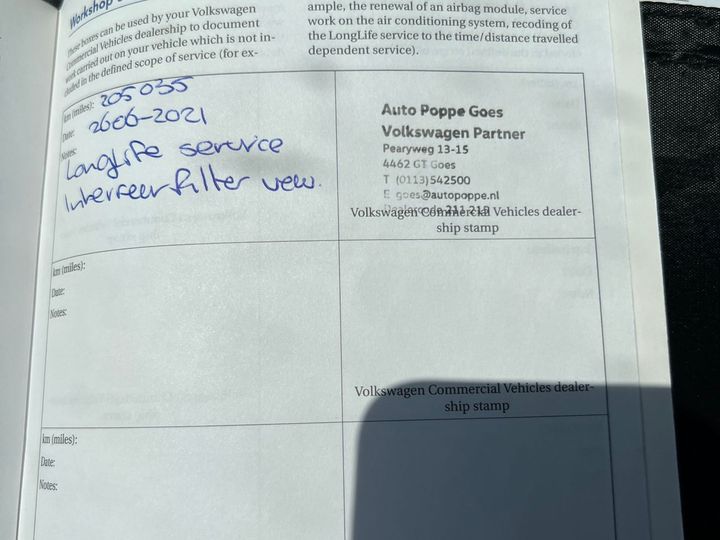 Workshop
These boxes can be used by your Volkswagen
Commercial Vehicles dealership to document
work carried out on your vehicle which is not in-
cluded in the defined scope of service (for ex-
ample, the renewal of an airbag module, service
work on the air conditioning system, recoding of
the LongLife service to the time/distance travelled
dependent service).
km (miles): 205035
Date: 2606-2021
Notes:
Longlife service
Interieur filter verv.
Auto Poppe Goes
Volkswagen Partner
Pearyweg 13-15
4462 GT Goes
T (0113)542500
E goes@autopoppe.nl
Volkswagen Commercial Vehicles dealer-
ship stamp
km (miles):
Date:
Notes:
Volkswagen Commercial Vehicles dealer-
ship stamp
km (miles):
Date:
Notes: